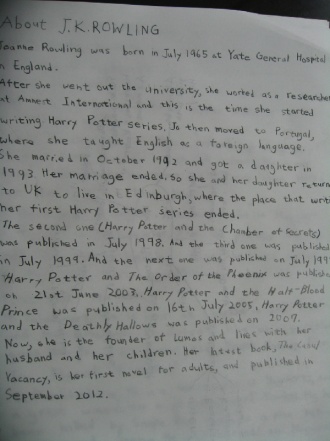 About J.K.ROWLING
Joanne Rowling was born in July 1965 at Yate General Hospital
in England.
After she went out the university, she worked as a researcher
at Amnest International and this is the time she started
writing Harry Potter series. Jo then moved to Portugal,
where she taught English as a foreign language.
She married in October 1992 and got a daughter in
1993. Her marriage ended. So she and her daughter return
to UK to live in Edinburgh, where the place that write
her first Harry Potter series ended.
The second one (Harry Potter and the Chamber of Secrets)
was published in July 1998. And the third one was published
in July 1999. And the next one was published on July 199
Harry Potter and The Order of the Phoenix was publishe
on 21st June 2003, Harry Potter and the Half-Blood
Prince was published on 16th July 2005, Harry Potter
and the Deathly Hallows was published on 2007.
Now, she is the founder of Lumos and lives with her
husband and her children. Her latest book, The Casul
Vacancy, is her first novel for adults, and published in
September 2012.